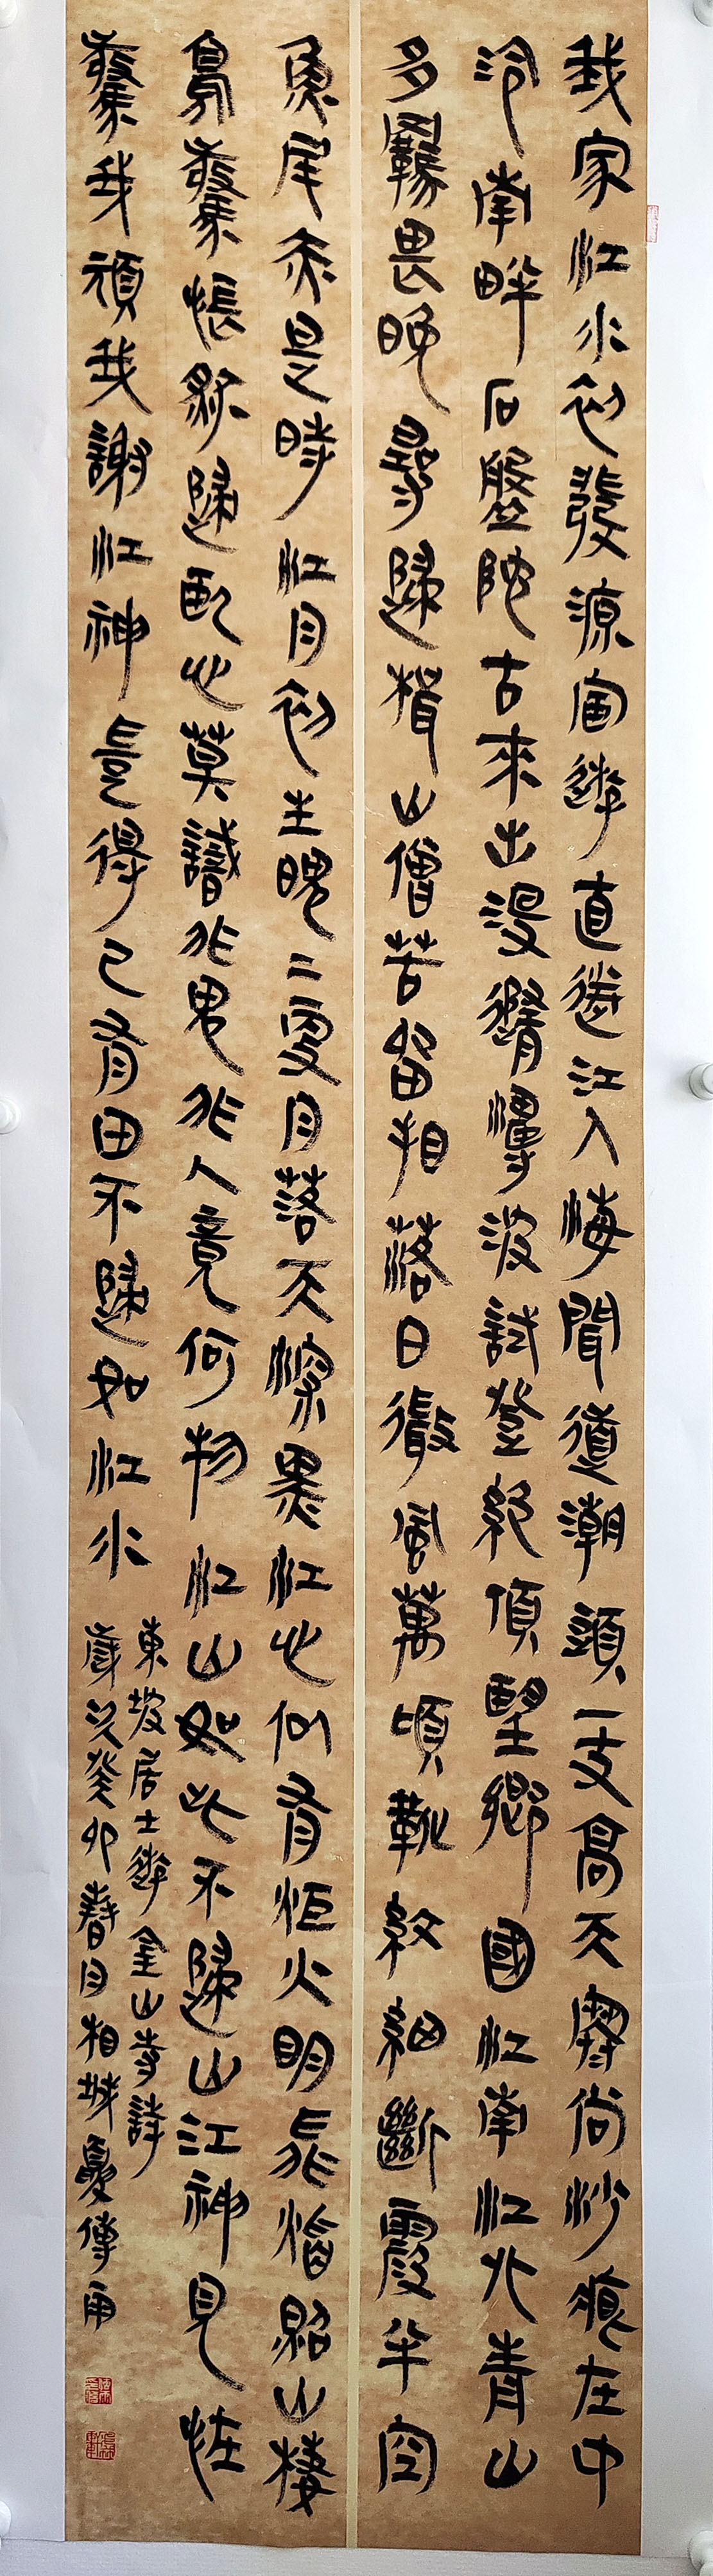 我家江水初發源宦遊直送江入海聞道潮頭一丈高天寒尚沙痕在中
泠南畔石盤陀古來出沒隨濤波試登絕頂望鄉國江南江北青山
多羈畏晚尋歸楫山僧苦留看落日微風萬頃靴紋細斷霞半空
魚尾赤是時江月初生魄二更月落天深黑江心似有炬火明飛焰照山棲
鳥驚悵然歸臥心莫識非鬼非人竟何物江山如此不歸山江神見怪
驚我頑我謝江神豈得已有田不歸如江水
東坡居士遊金山寺詩
歲次癸卯春月相城夏傳